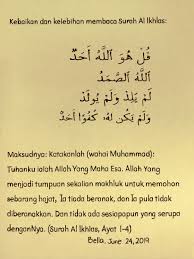 Kebaikan dan kelebihan membaca Surah Al Ikhlas:
قُلْ هُوَ اللَّهُ أَحَدٌ
اللَّهُ الصَّمَدُ
لَمْ يَلِدْ وَلَمْ يُولَدْ
وَلَمْ يَكُن لَّهُ كُفُوًا أَحَدٌ
Maksudnya: Katakanlah (wahai Muhammad):
Tuhanku ialah Allah Yang Maha Esa. Allah Yang
menjadi tumpuan sekalian makhluk untuk memohon
sebarang hajat, Ia tiada beranak, dan Ia pula tidak
diberanakkan. Dan tidak ada sesiapapun yang serupa
denganNya. (Surah Al Ikhlas, Ayat 1-4)
Bella, June 24, 2019